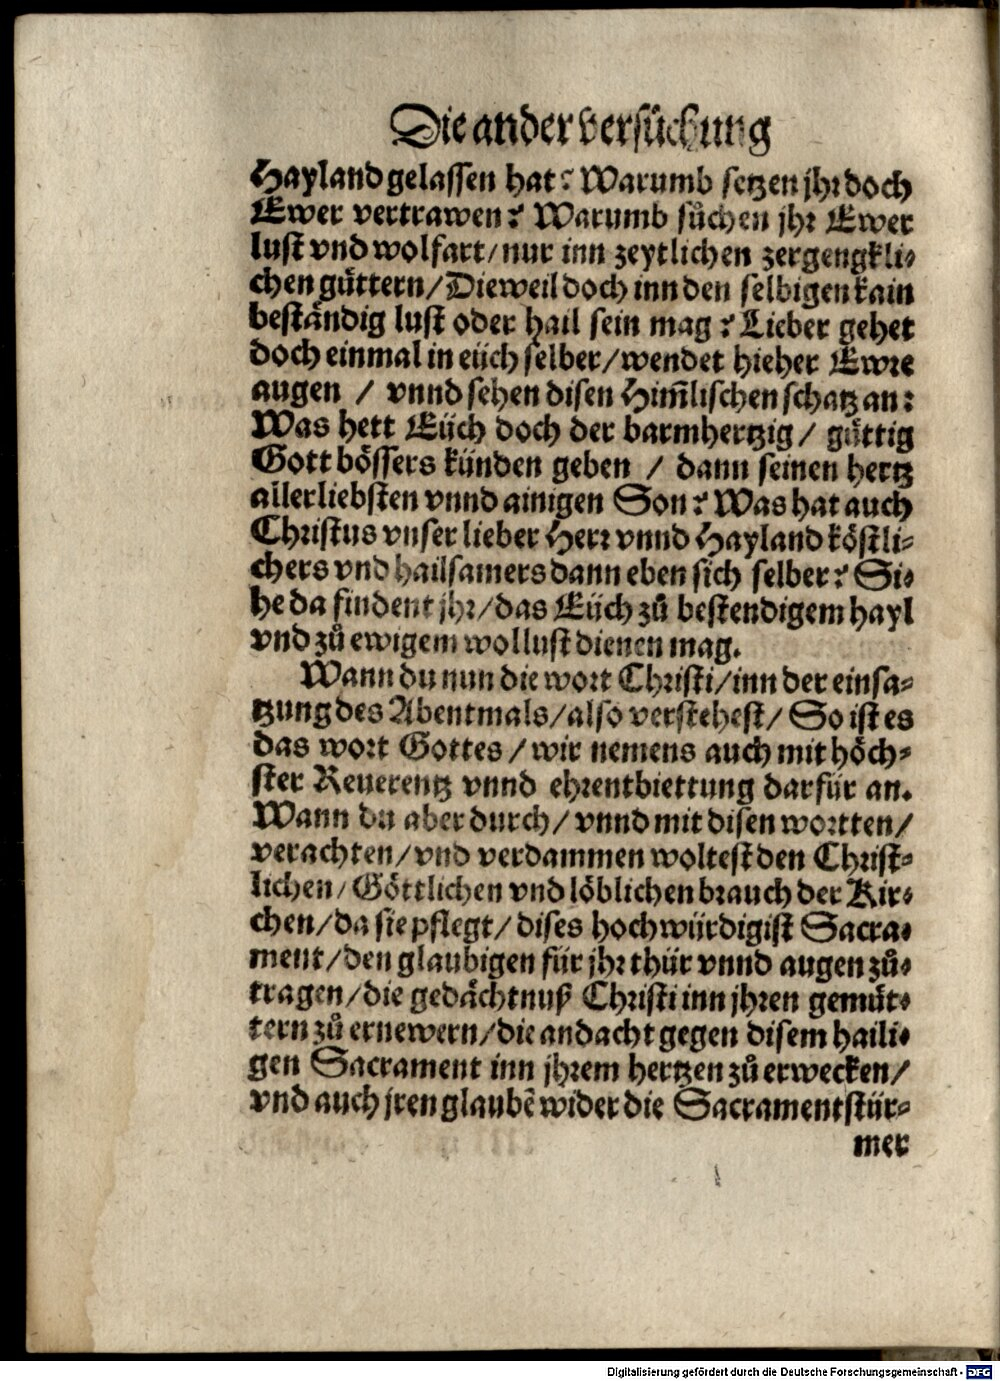 Die ander versůchung
Hayland gelassen hat? Warumb setzen jhr doch
Ewer vertrawen? Warumb sůchen jhr Ewer
lust vnd wolfart/ nur inn zeytlichen zergengkli-
chen gůttern/ Dieweil doch inn den selbigen kain
beståndig lust oder hail sein mag? Lieber gehet
doch einmal in eüch selber/ wendet hieher Ewre
augen / vnnd sehen disen Him̃lischen schatz an:
Was hett Eüch doch der barmhertzig/ gůttig
Gott bössers künden geben / dann seinen hertz
allerliebsten vnnd ainigen Son? Was hat auch
Christus vnser lieber Herr vnnd Hayland köstli-
chers vnd hailsamers dann eben sich selber? Si-
he da findent jhr/ das Eüch zů bestendigem hayl
vnd zů ewigem wollust dienen mag.
Wann du nun die wort Christi/ inn der einsa-
tzung des Abentmals/ also verstehest/ So ist es
das wort Gottes / wir nemens auch mit höch-
ster Reuerentz vnnd ehrentbiettung darfür an.
Wann du aber durch/ vnnd mit disen wortten/
verachten/ vnd verdammen woltest den Christ-
lichen/ Göttlichen vnd löblichen brauch der Kir-
chen/ da sie pflegt/ dises hochwürdigist Sacra-
ment/ den glaubigen für jhr thür vnnd augen zů-
tragen/ die gedåchtnuß Christi inn jhren gemůt-
tern zů ernewern/ die andacht gegen disem haili-
gen Sacrament inn jhrem hertzen zů erwecken/
vnd auch jren glaubẽ wider die Sacramentstür-
mer
Digitalisierung gefördert durch die Deutsche Forschungsgemeinschaft - DFG